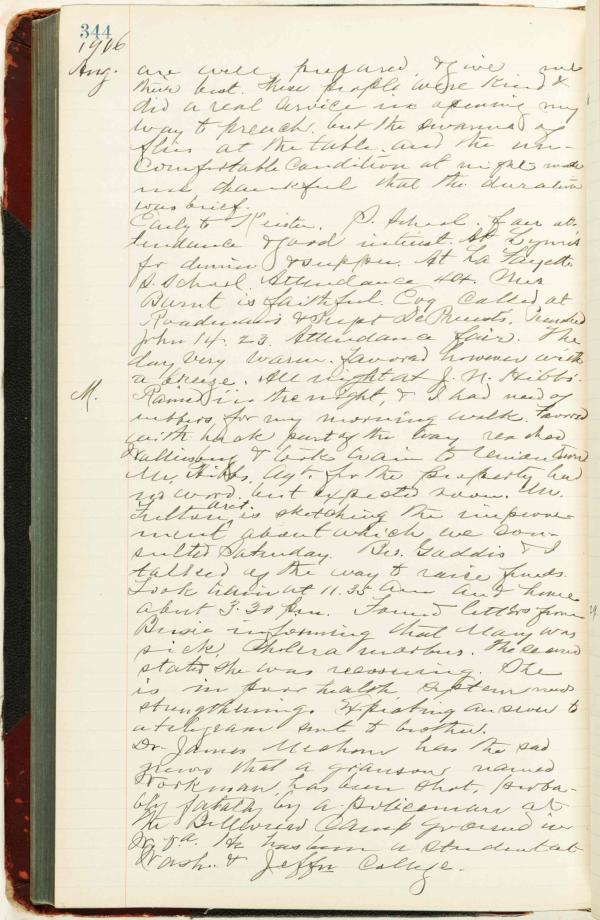 344
1906
Aug. are well prepared & give me
their best. These people were kind &
did a real service in opening my
way to preach. but the swarms of
flies at the table, and the un-
comfortable condition at night made
me thankful that the duration
was brief.
Early to Keister. S. School. fair at-
tendance & good interest. At Lynn's
for dinner & supper. At La Fayette
S. School. Attendance 44. Mrs
Burnt is faithful. Coy called at
Roadman's & slept Preached
John 14.23. Attendance fair. The
day very warm. favored however with
a breeze. All night at J. N. Hibbs.
M. Rained in the night & I had need of
rubbers for my morning walk. favored
with hack part of the way reached
& took train to Uniontown
Mr. Hibbs, Agt. for the property had
no word. but expected soon. Mr.
Fulton, arct. is sketching the improve-
ment about which we con-
sulted Saturday. Bro. Gaddis & I
talked of the way to raise funds.
Took train at 11.35 am and home
about 3:30 p.m. Found letters from
informing that Mary was
sick. Cholera morbus. The second
stated she was recovering. She
is in poor health. System needs
strengthening. Expecting answer to
a telegram sent to brother.
Dr. James has the sad
news that a grandson named
Workman, has been shot, proba-
bly fatally by a policeman at
the Camp ground in
W. Va. He has been a student at
Wash. & Jeffn College.